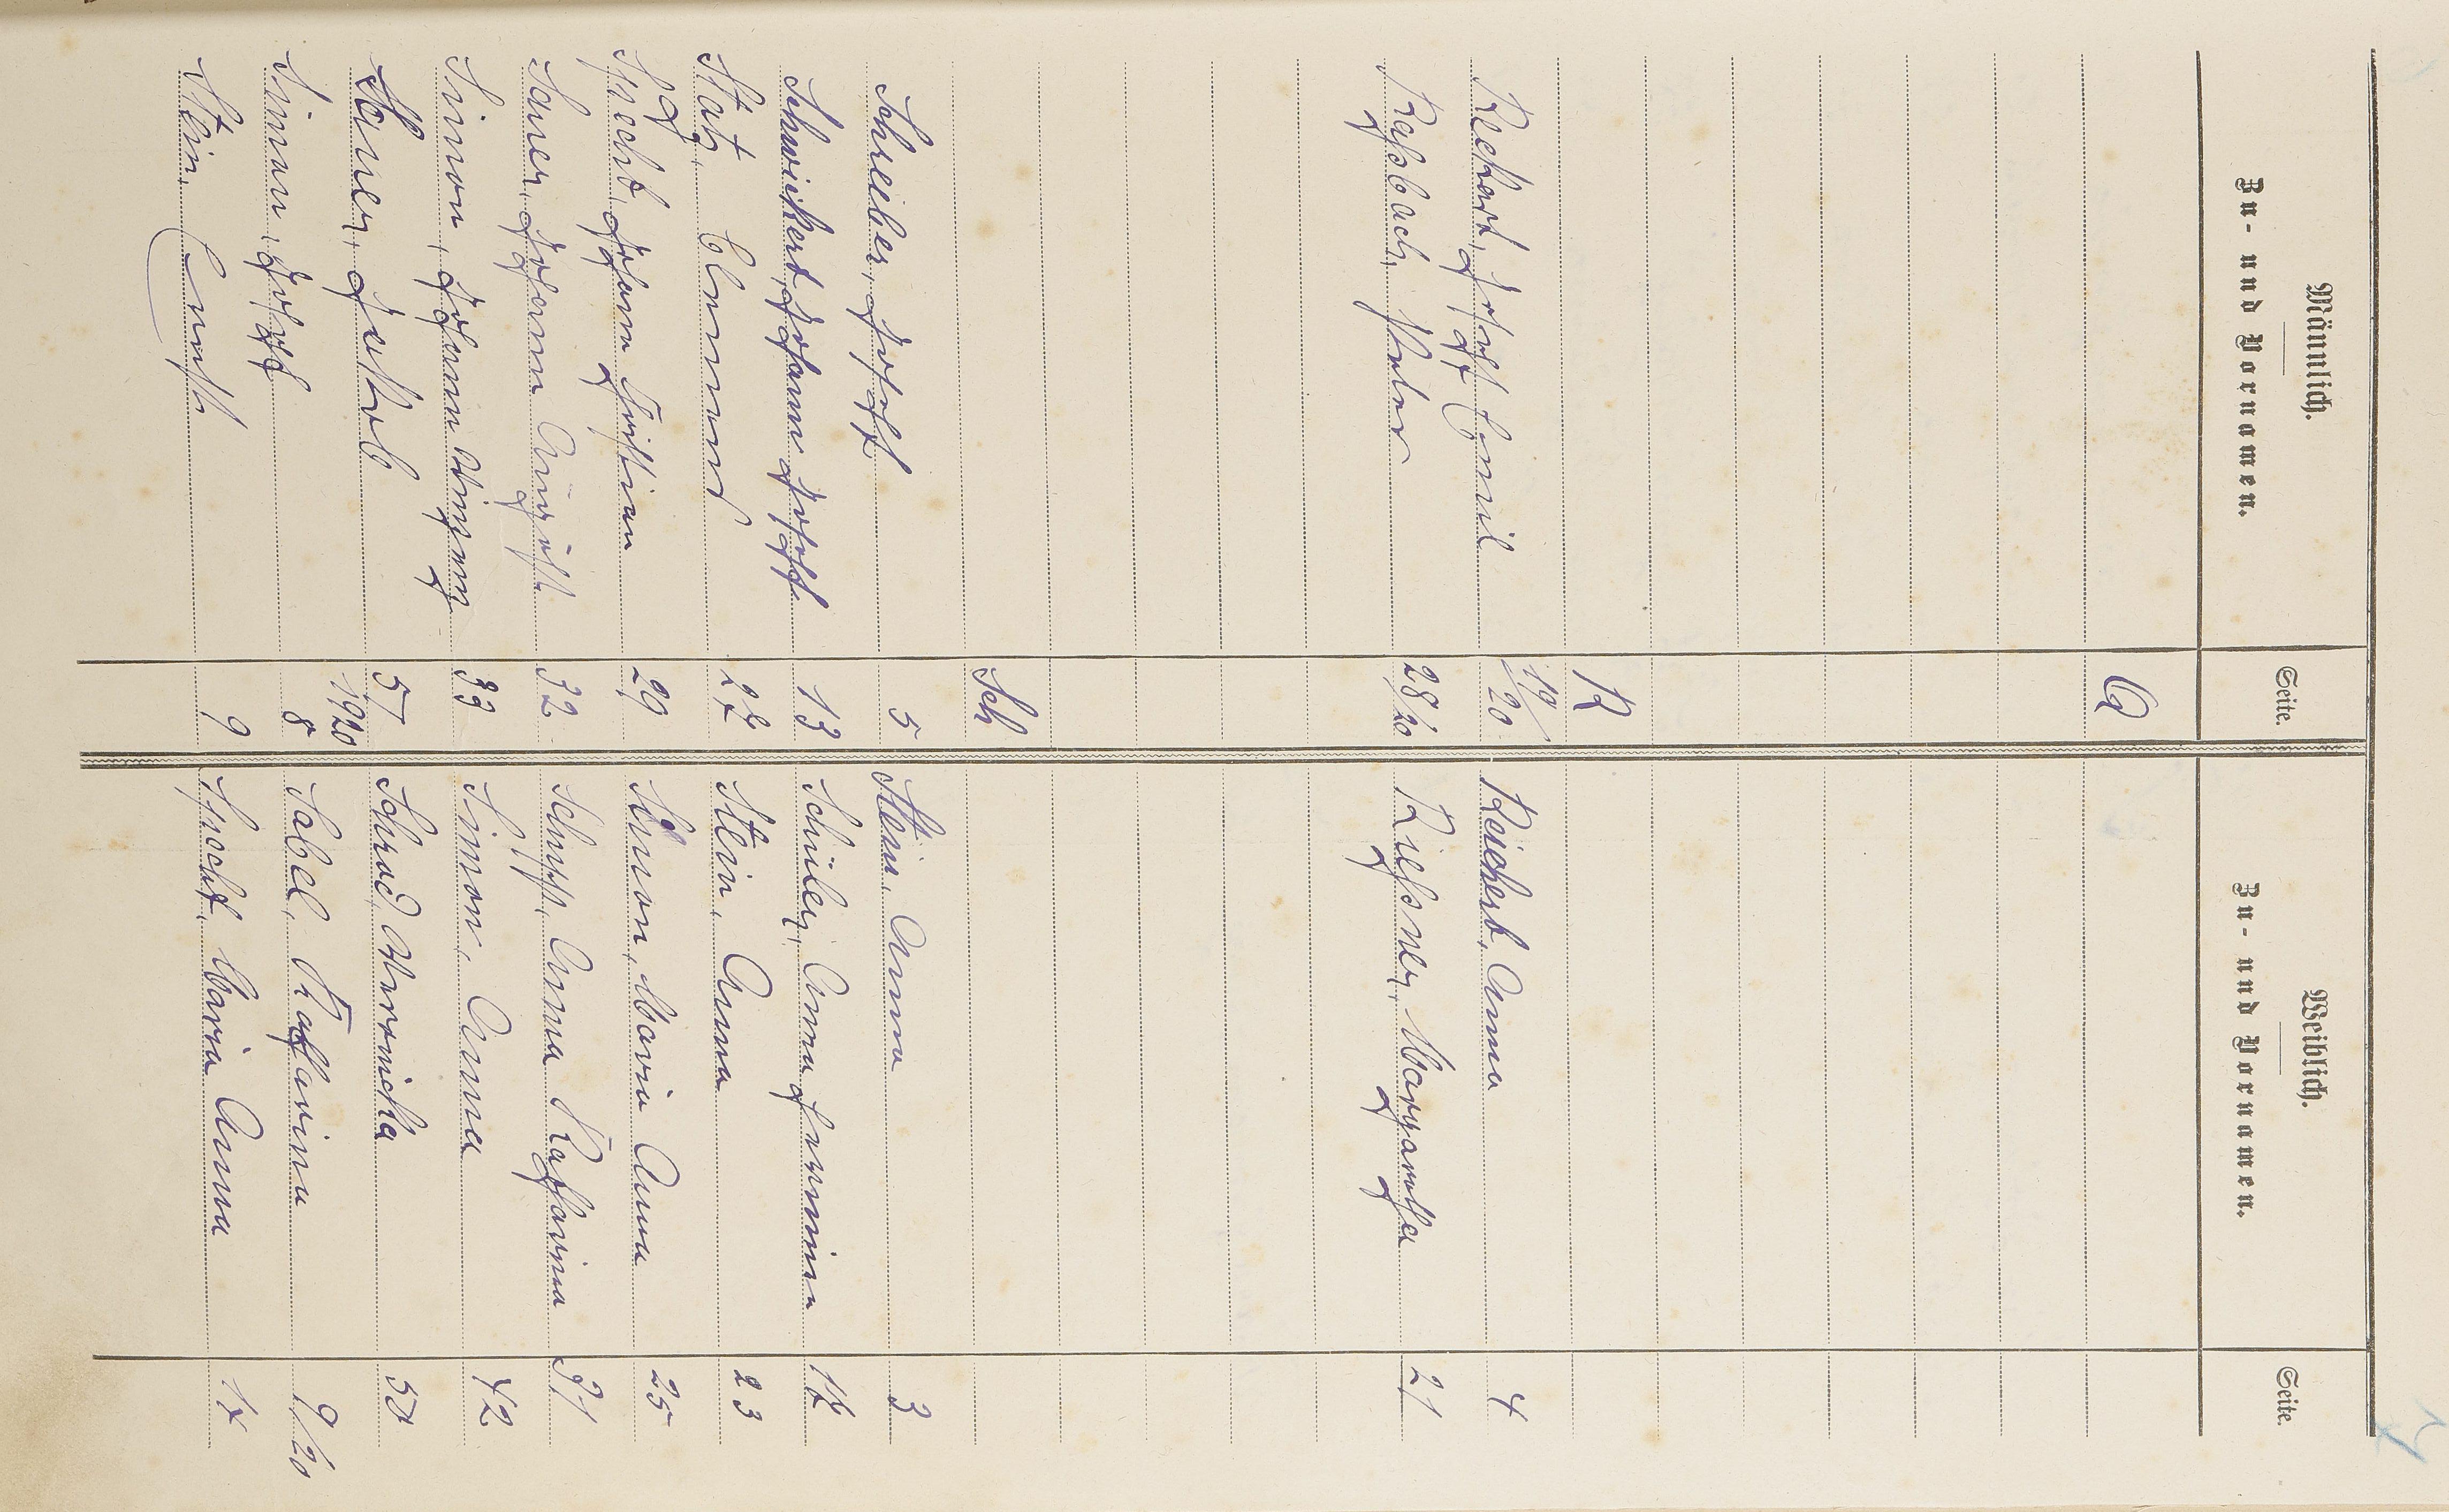 Männlich.
Zu- und Vornamen.
Seite.
Weiblich.
Zu- und Vornamen.
Seite.
Q
R
Reichert, Josef Emil 19/20 Reichert, Anna 4
Raßbach, Peter 28/20 Rießner, Margaretha 21
Sch
Schreiber, Josef 5 Stein, Anna 3
Schwickert, Johann Josef 13 Schüler, Anna Hermina
Statz, Clemens Stein, Anna 23
Specht, Johann Christian 29 Simon, Maria Anna 25
Sauer, Johann August 32 Schupp, Anna Katharina 31
Simon, Johann 33 Simon, Anna 42
Sauer, Jakob 57 Schrod, Veronika 52
1920
Simon, Josef 8 Sabel, Katharina 9/20
Stein, Ernst 9 Specht, Maria Anna